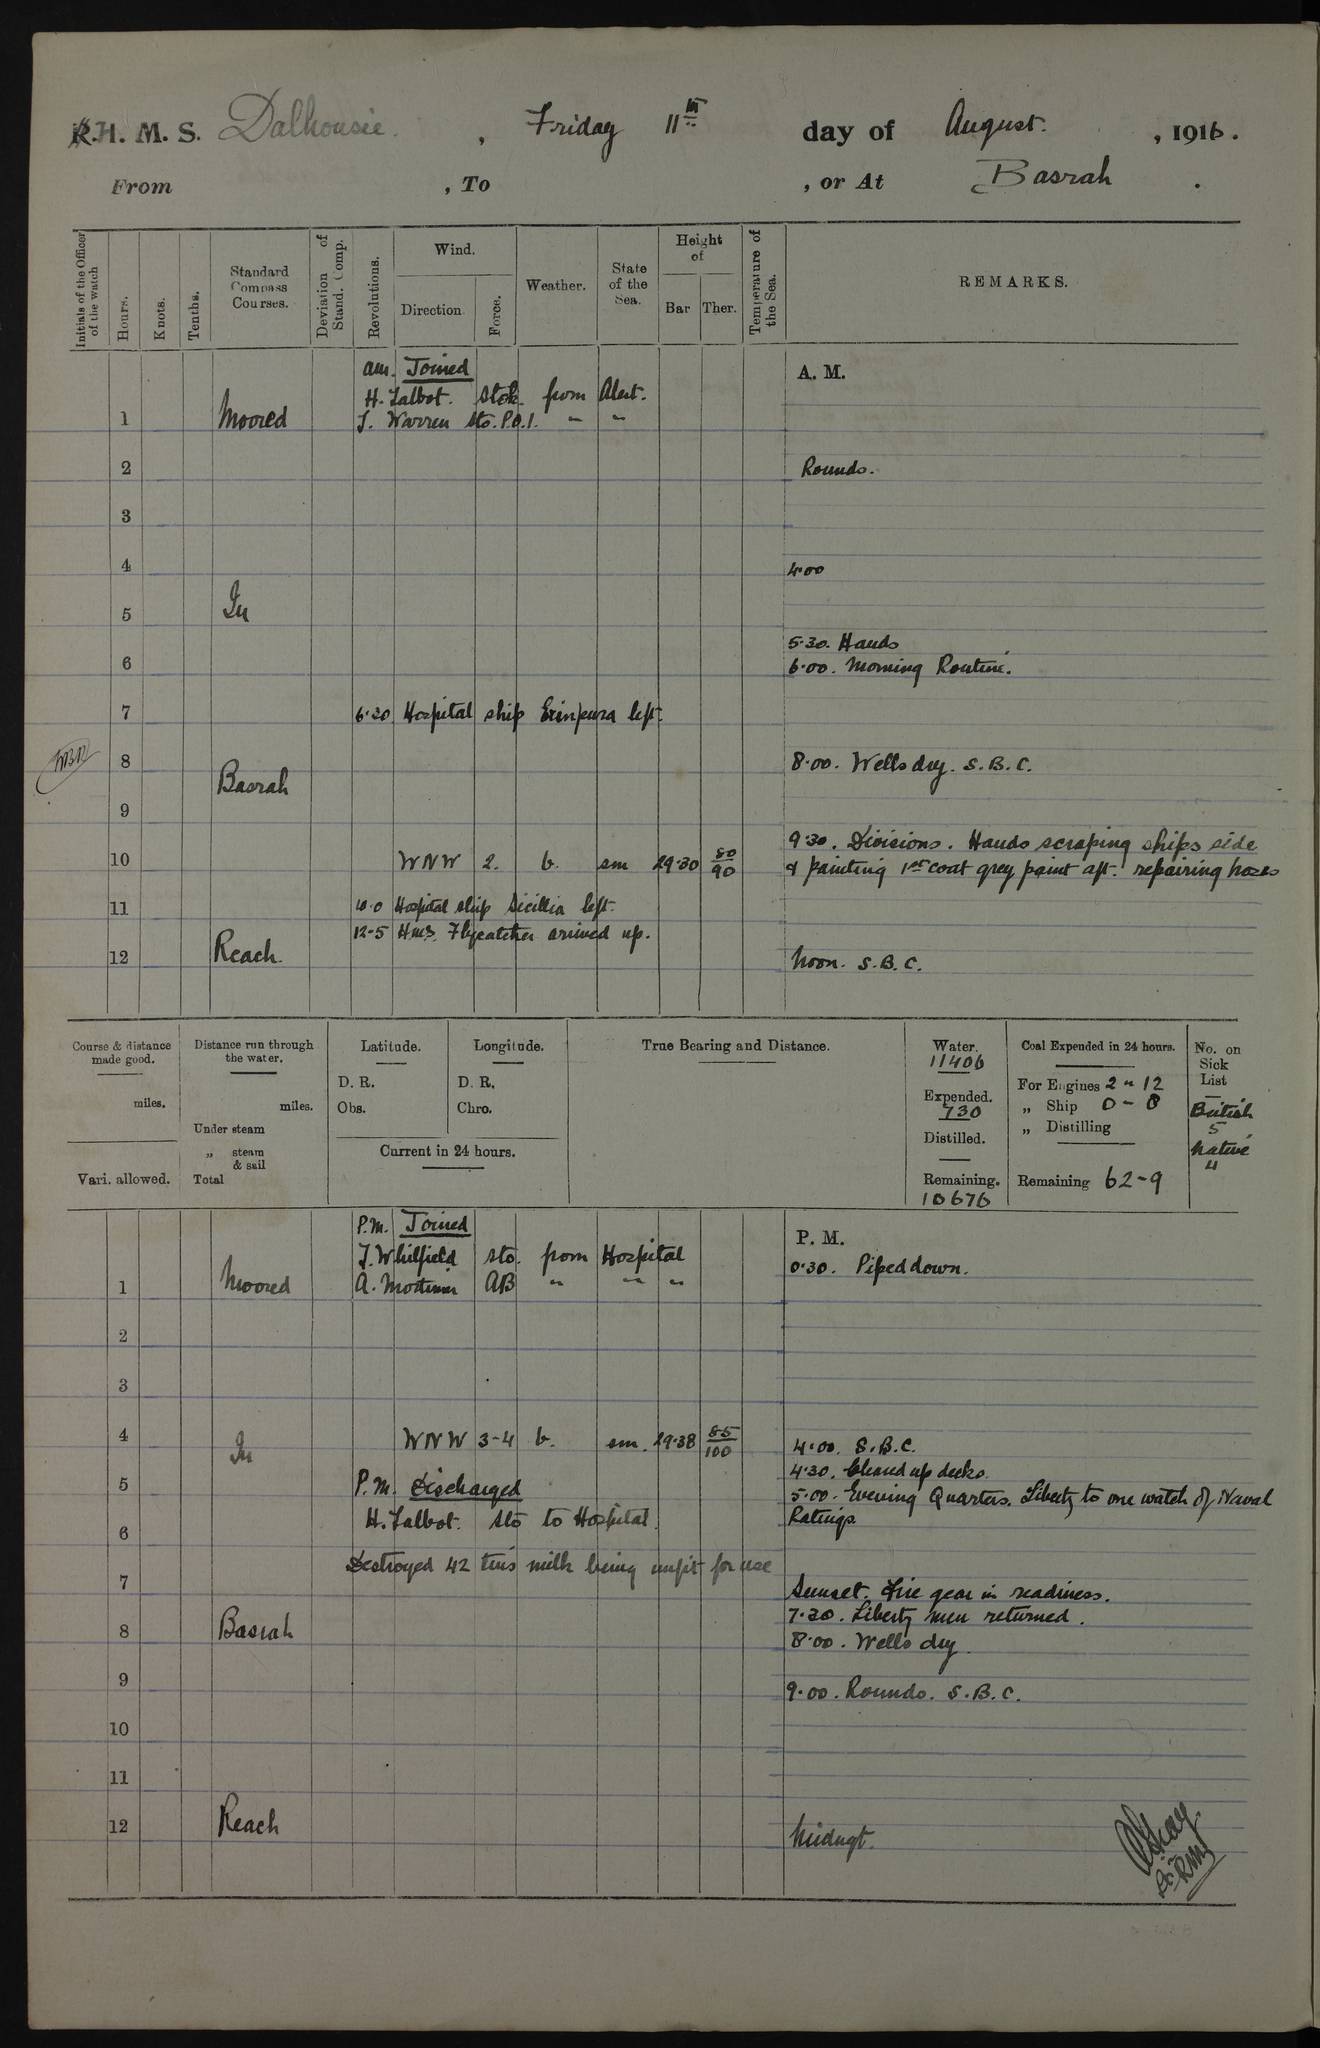 R.H. M. S. Dalhousie. , Friday 11th day of August. , 1916.
From , To , or At Basrah .
Initials of the Officer of the watch
Hours.
Knots.
Tenths.
Standard Compass Courses.
Deviation of Stand. Comp.
Revolutions.
Wind.
Direction
Force.
Weather.
State of the Sea.
Height of
Bar Ther.
Temperature of the Sea.
REMARKS.
am. Joined
A. M.
H. Talbot. Stok. from Alert.
1 Moored J. Warren Sto. P.O.1. " "
2 Rounds.
3
4 4.00
In
5
5.30. Hands
6 6.00. Morning Routine.
7 6.30 Hospital ship Erinpura left.
8 8.00. Wells dry. S.B.C.
Basrah
9
9.30. Divisions. Hands scraping ships side
10 WNW 2. b. sm 29.30 80/90 & painting 1st coat grey paint aft. repairing hoses
11 10.0 Hospital ship Sicillia left.
12-5 H.M.S. Flycatcher arrived up.
12 Reach. Noon. S.B.C.
Course & distance made good.
miles.
Vari. allowed.
Distance run through the water.
miles.
Under steam
„ steam & sail
Total
Latitude.
D. R.
Obs.
Longitude.
D. R.
Chro.
Current in 24 hours.
True Bearing and Distance.
Water.
11406
Expended.
730
Distilled.
Remaining.
10676
Coal Expended in 24 hours.
For Engines 2 " 12
„ Ship 0 - 8
„ Distilling
Remaining 62-9
No. on Sick List
British
5
Native
4
P.M. Joined
P. M.
J. Whilfield Sto. from Hospital
0.30. Piped down.
1 Moored A. Mortimer AB " " "
2
3
4 In WNW 3-4 b. sm. 29.38 85/100 4.00. S.B.C.
4.30. Cleared up decks.
5 P.M. Discharged 5.00. Evening Quarters. Liberty to one watch of Naval
H. Talbot. Sto to Hospital. Ratings.
6
Destroyed 42 tins milk being unfit for use
7 Sunset. Fire gear in readiness.
7.30. Liberty men returned.
8 Basrah 8.00. Wells dry.
9 9.00. Rounds. S.B.C.
10
11
12 Reach Midngt.